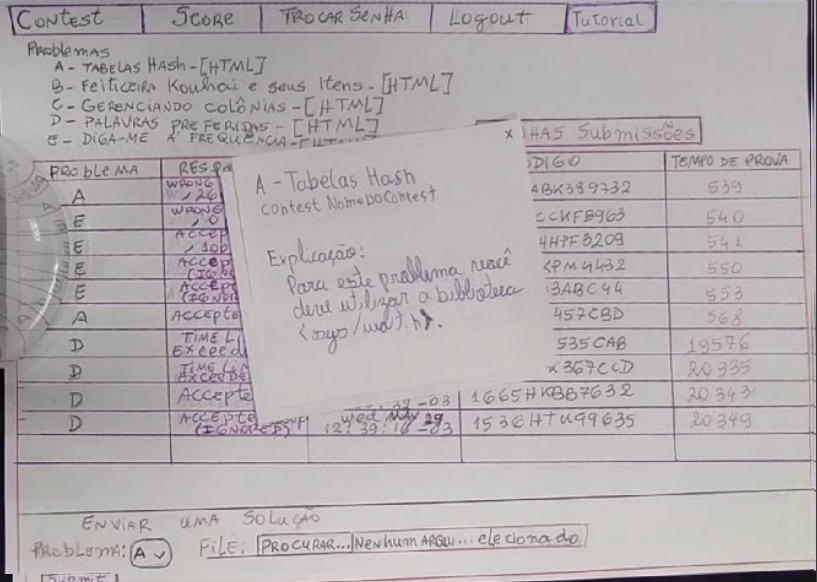 Contest Score TROCAR SENHA Logout Tutorial
Problemas
A - TABELAS HASH - [HTML]
B - Feiticeira Kouhai e seus Itens - [HTML]
C - GERENCIANDO COLÔNIAS - [HTML]
D - PALAVRAS PREFERIDAS - [HTML]
E - DIGA-ME A FREQUÊNCIA -
HAS Submissões
PROBLEMA TEMPO DE PROVA
A WRONG , 26 ABK389732 539
E WRONG , 0 CCKFB963 540
E ACCEP 4HPF3209 541
E ACCEP 550
E ACCEP 3ABC44 553
A ACCEPTE 457CBD 568
D TIME LI Exceed 535CAB 19576
D TIME LI EXCEEDE 367CCD 20335
D Accepte -03 1665HKBB7632 20343
D ACCEPTE (IGNORED) Wed Nov 29 12:39:16 -03 1536HTU99635 20349
x
A - Tabelas Hash
contest NomeDoContest
Explicação:
Para este problema você
deve utilizar a biblioteca
ENVIAR UMA SOLUÇÃO
PROBLEMA: A FILE: PROCURAR... Nenhum ARQU... elecionado.
Submit